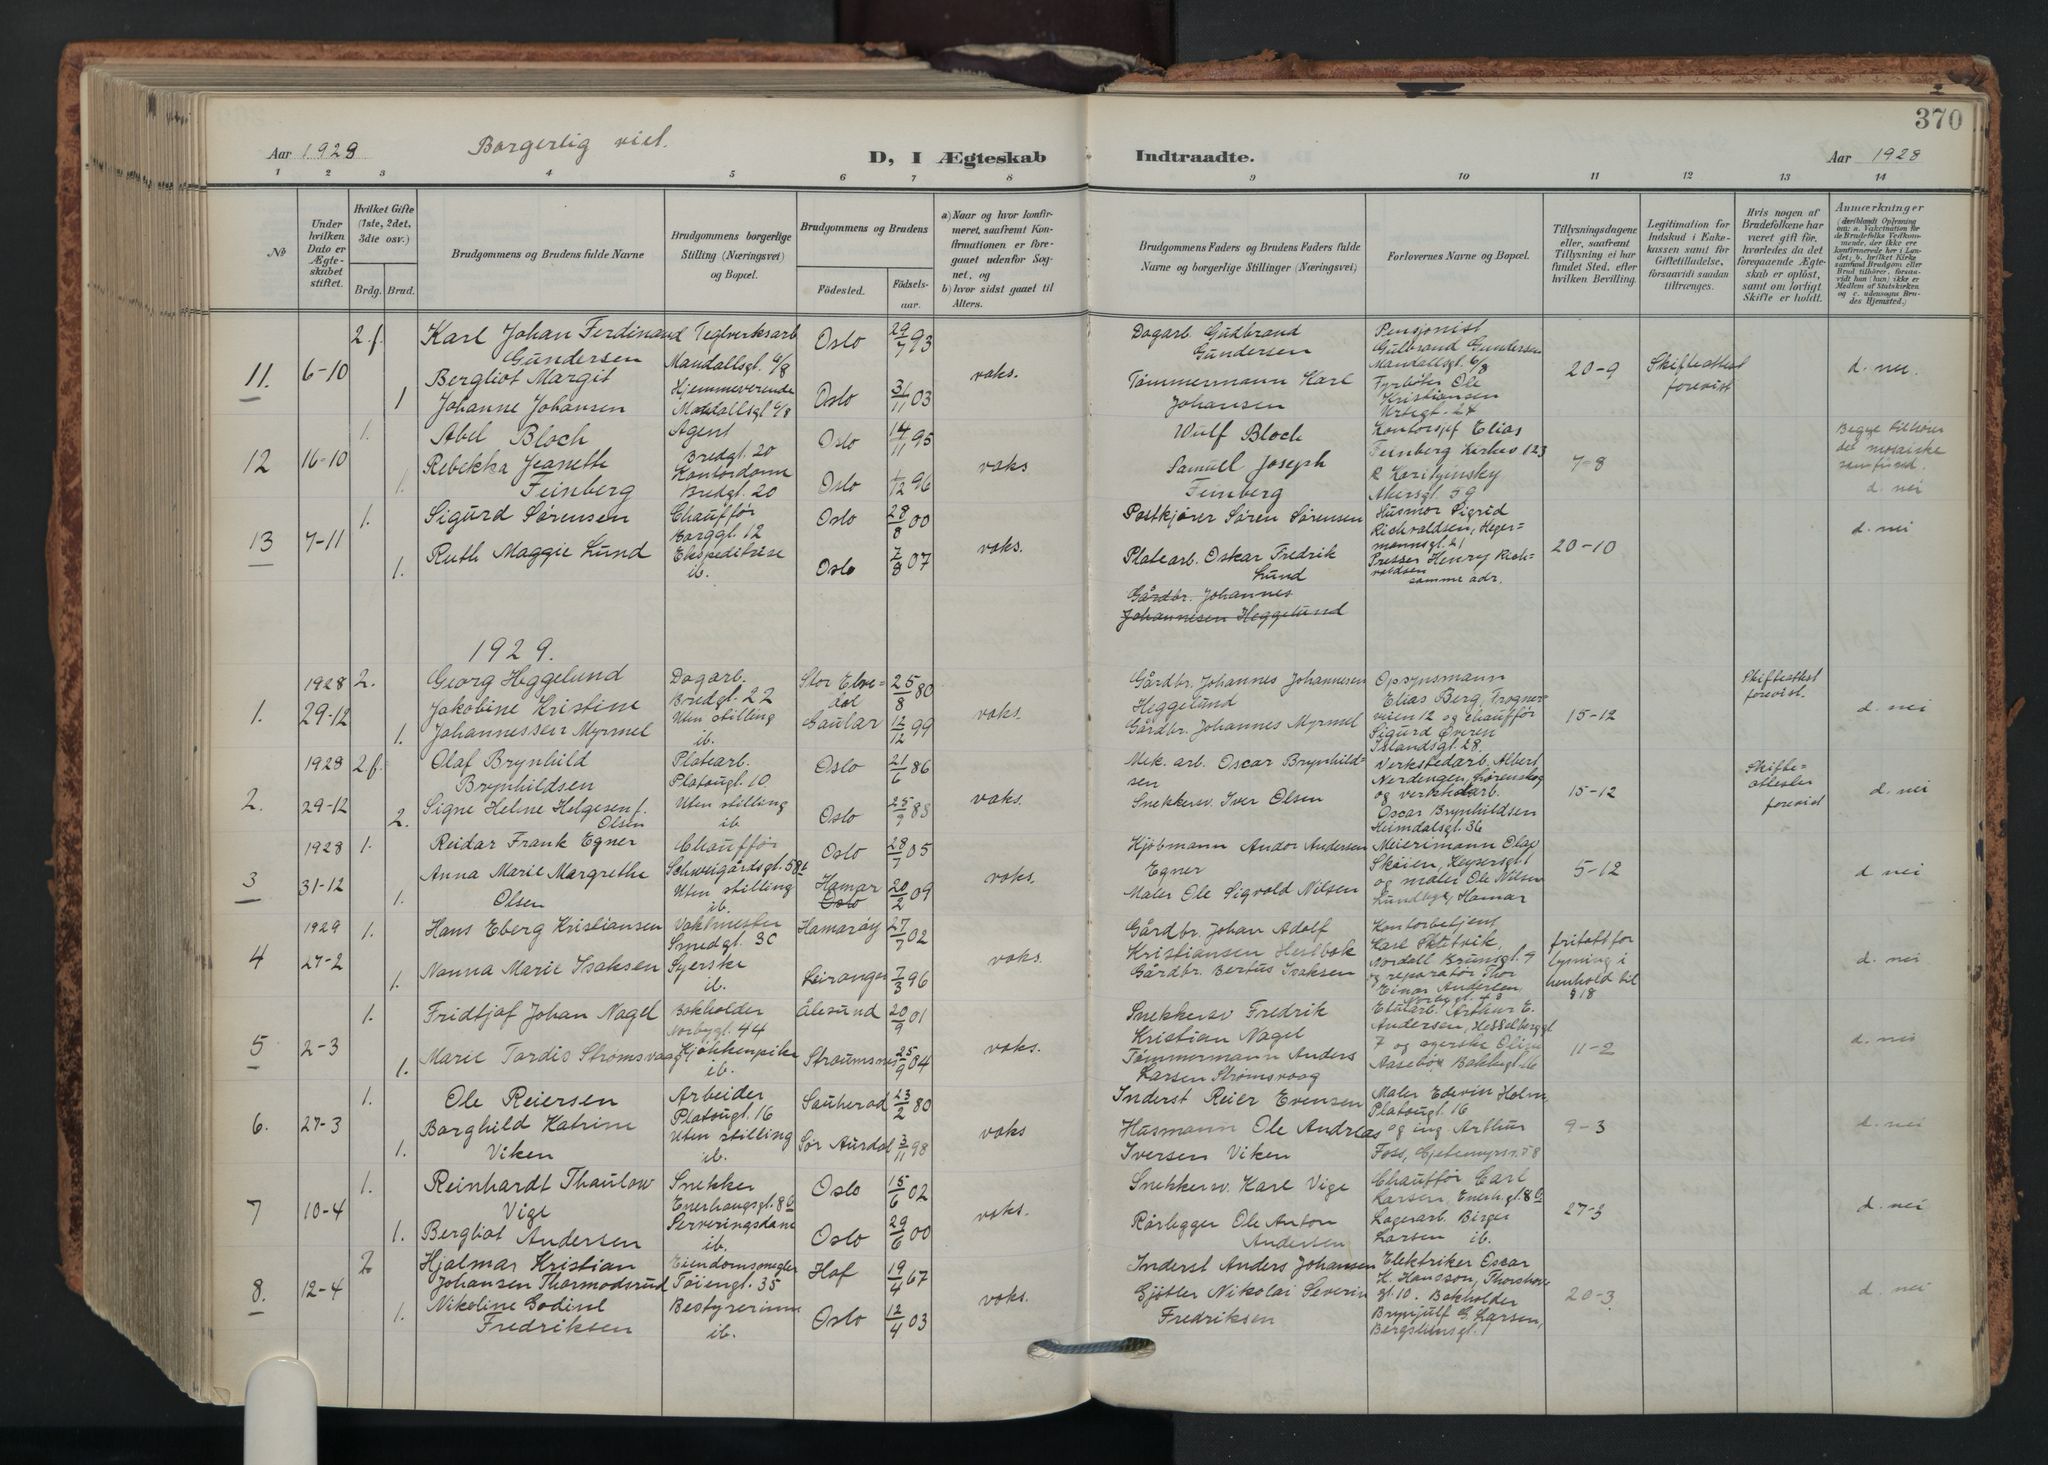 370
Aar 1928
Borgerlig viet.
D, I Ægteskab
Indtraadte.
Aar 1928
1 2 3 4 5 6 7 8 9 10 11 12 13 14
No
Under hvilken Dato er Ægteskabet stiftet.
Hvilket Gifte (1ste, 2det, 3die osv.)
Brdg. Brud.
Brudgommens og Brudens fulde Navne
Brudgommens borgerlige Stilling (Næringsvei) og Bopæl.
Brudgommens og Brudens
Fødested.
Fødselsaar.
a) Naar og hvor konfirmeret, saafremt Konfirmationen er foregaaet udenfor Sognet, og
b) hvor sidst gaaet til Alters.
Brudgommens Faders og Brudens Faders fulde Navne og borgerlige Stillinger (Næringsvei)
Forlovernes Navne og Bopæl.
Tillysningsdagene eller, saafremt Tillysning ei har fundet Sted, efter hvilken Bevilling.
Legitimation for Indskud i Enkekassen samt for Giftetilladelse, forsaavidt saadan tiltrænges.
Hvis nogen af Brudefolkene har været gift før, hvorledes da det foregaaende Ægteskab er opløst, samt om lovligt Skifte er holdt.
Anmærkninger
11. 6-10 2.f. Karl Johan Ferdinand Gundersen
Teglverksarb Mandallsgt. 6/8
Oslo 29/7 93
voks.
Dagarb. Gudbrand Gundersen
Pensjonist Gulbrand Gundersen Mandallsgt 6/8
20-9
Skifteattest forevist
d. nei.
1 Bergliot Margit Johanne Johansen
Hjemmeværende Mandallsgt 6/8
Oslo 3/11 03
Tømmermann Karl Johansen
Fyrbøter Ole Kristiansen Urtegt. 24
12 16-10 1. Abel Bloch
Agent Bredgt. 20
Oslo 14/11 95
voks
Wulf Bloch
Kontorsjef Elias Feinberg Kirkev. 123
7-8
Begge tilhører det mosaiske samfund.
d. nei
1. Rebekka Jeanette Feinberg
Kontordame Bredgt. 20
Oslo 1/12 96
Samuel Joseph Feinberg
Akersgt. 59
13 7-11 1. Sigurd Sørensen
Chauffør Borggt. 12
Oslo 28/8 00
voks.
Postkjører Søren Sørensen
Husmor Sigrid Richvaldsen, Hegermannsgt. 21
20-10
d. nei
1. Ruth Maggie Lund
Ekspeditrise ib.
Oslo 7/8 07
Platearb. Oskar Fredrik Lund
Presser Henry Richvaldsen samme adr.
Gårdbr. Johannes Johannesen Heggelund
1929.
1. 1928 29-12 2. Georg Heggelund
Dagarb. Bredgt. 22
Stor Elvedal 25/8 80
voks.
Gårdbr. Johannes Johannesen Heggelund
Opsynsmann Elias Berg, Frognerveien 12 og chauffør Sigurd Øveren Islandsgt. 28.
15-12
Skifteattest forevist.
d. nei
1. Jakobine Kristine Johannessen Myrmel
Uten stilling ib.
Gaular 12/12 99
Gårdbr. Johannes Myrmel
2. 1928 29-12 2.f. Olaf Brynhild Brynhildsen
Platearb. Platougt. 10
Oslo 21/6 86
voks.
Mek. arb. Oscar Brynhildsen
Verkstedarb. Albert Nerdengen, Lørenskog og verkstedarb. Oscar Brynhildsen Heimdalsgt. 36
15-12
Skifteattester forevist
d. nei
2. Signe Helene Helgesen f. Olsen
Uten stilling ib
Oslo 25/9 83
Snekkersv. Iver Olsen
3 1928 31-12 1. Reidar Frank Egner
Chauffør Schweigårdsgt. 58b
Oslo 28/7 05
voks.
Kjøbmann Andor Andersen Egner
Meierimann Olaf Skøien, Keysersgt. 1 og maler Ole Nilsen Lundbye, Hamar
5-12
d nei
1. Anna Marie Margrethe Olsen
Uten stilling ib.
Hamar Oslo 20/2 09
Maler Ole Sigvald Nilsen
4 1929 27-2 1. Hans Eberg Kristiansen
Vaktmester Smedgt. 30
Hamarøy 27/7 02
voks.
Gårdbr. Johan Adolf Kristiansen
Kontorbetjent Karl Sletvik, Nordall Brunsgt. 9 og reparatør Thor Einar Andersen, Norbygt. 43
fritatt for lysning i henhold til § 18
d. nei
1. Nanna Marie Isaksen
Syerske ib.
Leiranger 7/3 96
Gårdbr. Bertus Isaksen
5 2-3 1. Fridtjof Johan Nagel
Bokholder Norbygt. 44
Ålesund 20/9 01
voks.
Snekkersv Fredrik Kristian Nagel
Arthur E. Andersen, Hesselberggt 7 og syerske Oline Aasebøe
11-2
d. nei
1. Marie Tordis Strømsvaag
Kjøkkenpike ib.
Straumsnes 25/9 04
Tømmermann Anders Larsen Strømsvaag
6. 27-3 1. Ole Reiersen
Arbeider Platougt. 16
Sauherad 23/2 80
voks
Inderst Reier Evensen
Maler Edvin Holm, Platougt. 16 og ing. Arthur Foss, Gjetemyrsv. 58
9-3
d. nei
1. Borghild Katrine Viken
Uten stilling ib.
Sør Aurdal 3/11 98
Husmann Ole Andreas Iversen Viken
7 10-4 1. Reinhardt Thaulow Vige
Snekker Enerhaugsgt. 8b
Oslo 15/6 02
voks.
Snekkersv. Karl Vige
Chauffør Carl Larsen, Enerhgt. 8b Lagerarb. Birger Larsen ib.
27-3
d. nei
1. Bergliot Andersen
Serveringsdame ib.
Oslo 29/6 00
Rørlegger Ole Anton Andersen
8. 12-4 2 Hjalmar Kristian Johansen Thormodsrud
Eiendomsmegler Tøiengt. 35
Hof 19/4 67
voks.
Inderst Anders Johansen
Elektriker Oscar H. Hansson, Thorshovgt. 10. Bokholder Brynjulf G. Larsen, Bergsliensgt. 1
20-3
d. nei
1. Nikoline Godine Fredriksen
Bestyrerinne ib.
Oslo 12/4 03
Gjøtler Nikolai Severin Fredriksen